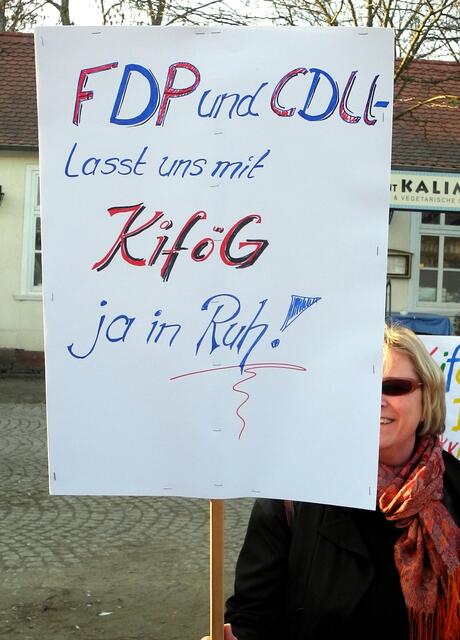 FDP und CDU-
Lasst uns mit
KiföG
ja in Ruh!
KALI
& VEGETARISCHE